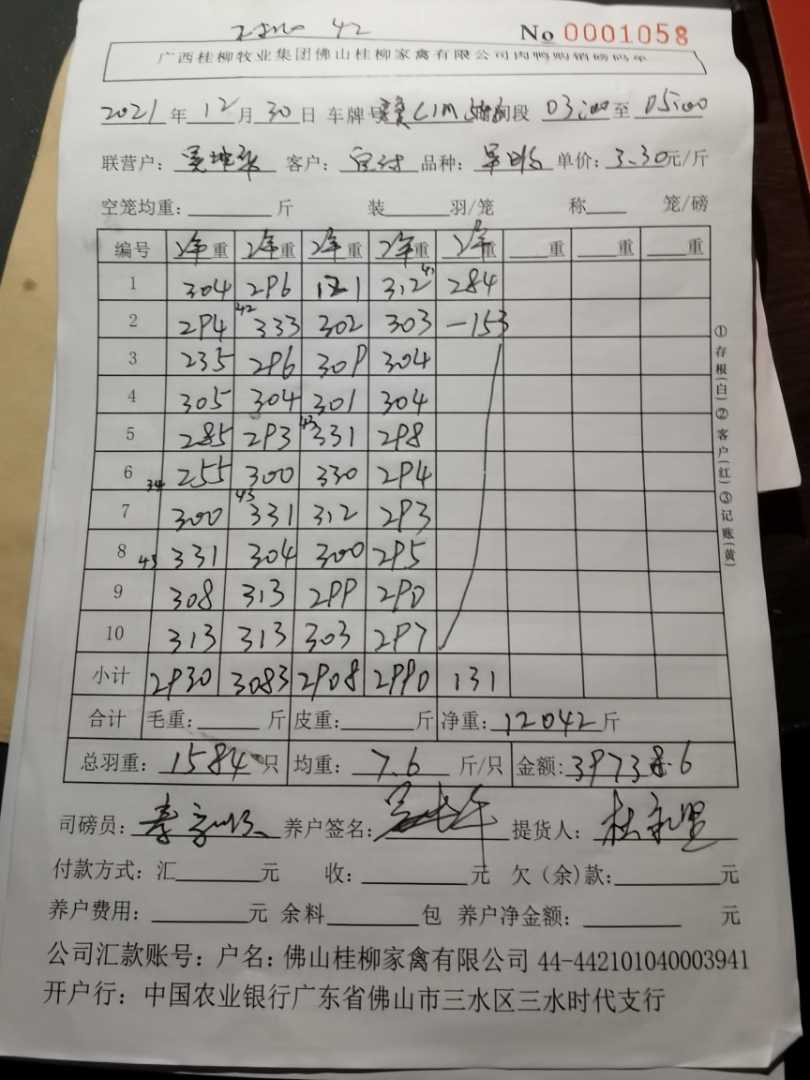 42
No 0001058
广西桂柳牧业集团佛山桂柳家禽有限公司肉鸭购销磅码单
2021年12月30日 车牌号: 时间段 03:00至05:00
联营户: 客户: 品种: 单价:3.30元/斤
空笼均重: 斤 装 羽/笼 称 笼/磅
编号 净重 净重 净重 净重 净重 重 重 重
1 304 296 121 312 41 284
2 294 42 333 302 303 -153
3 235 296 309 304
4 305 304 301 304
5 285 293 43 331 298
6 34 255 300 330 294
7 300 43 331 312 293
8 43 331 304 300 295
9 308 313 299 290
10 313 313 303 297
小计 2930 3083 2908 2990 131
合计 毛重: 斤 皮重: 斤 净重:12042斤
总羽重:1584只 均重:7.6斤/只 金额:39738.6
司磅员: 养户签名: 提货人:
付款方式:汇 元 收: 元 欠(余)款: 元
养户费用: 元 余料 包 养户净金额: 元
公司汇款账号:户名:佛山桂柳家禽有限公司 44-442101040003941
开户行:中国农业银行广东省佛山市三水区三水时代支行
①存根(白)②客户(红)③记账(黄)